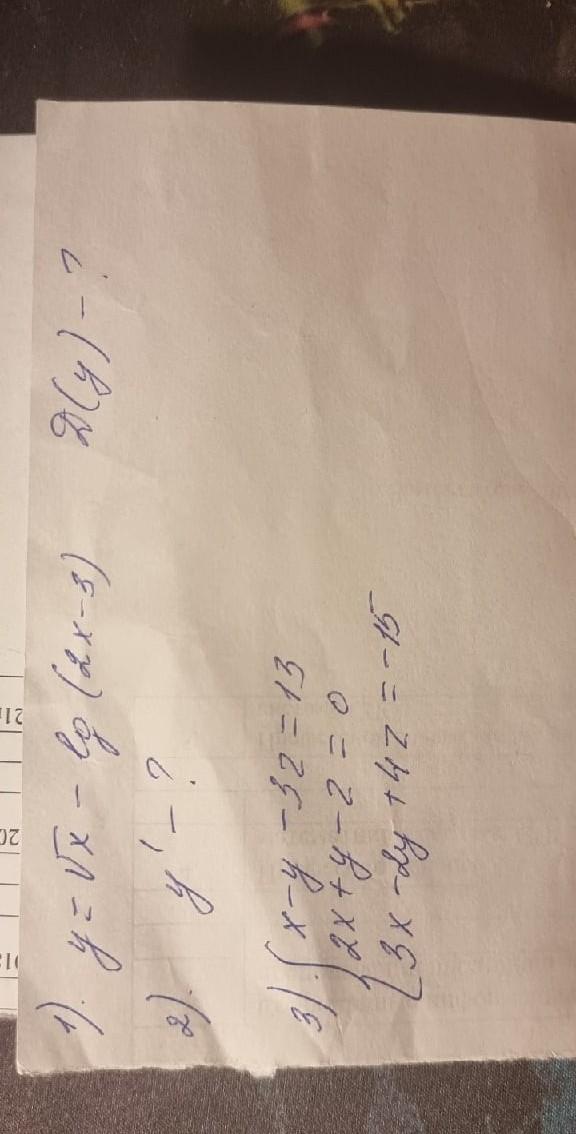 1). y = √x - lg (2x-3) D(y) - ?
2). y' - ?
3) { x - y - 3z = 13
2x + y - z = 0
3x - 2y + 4z = -15